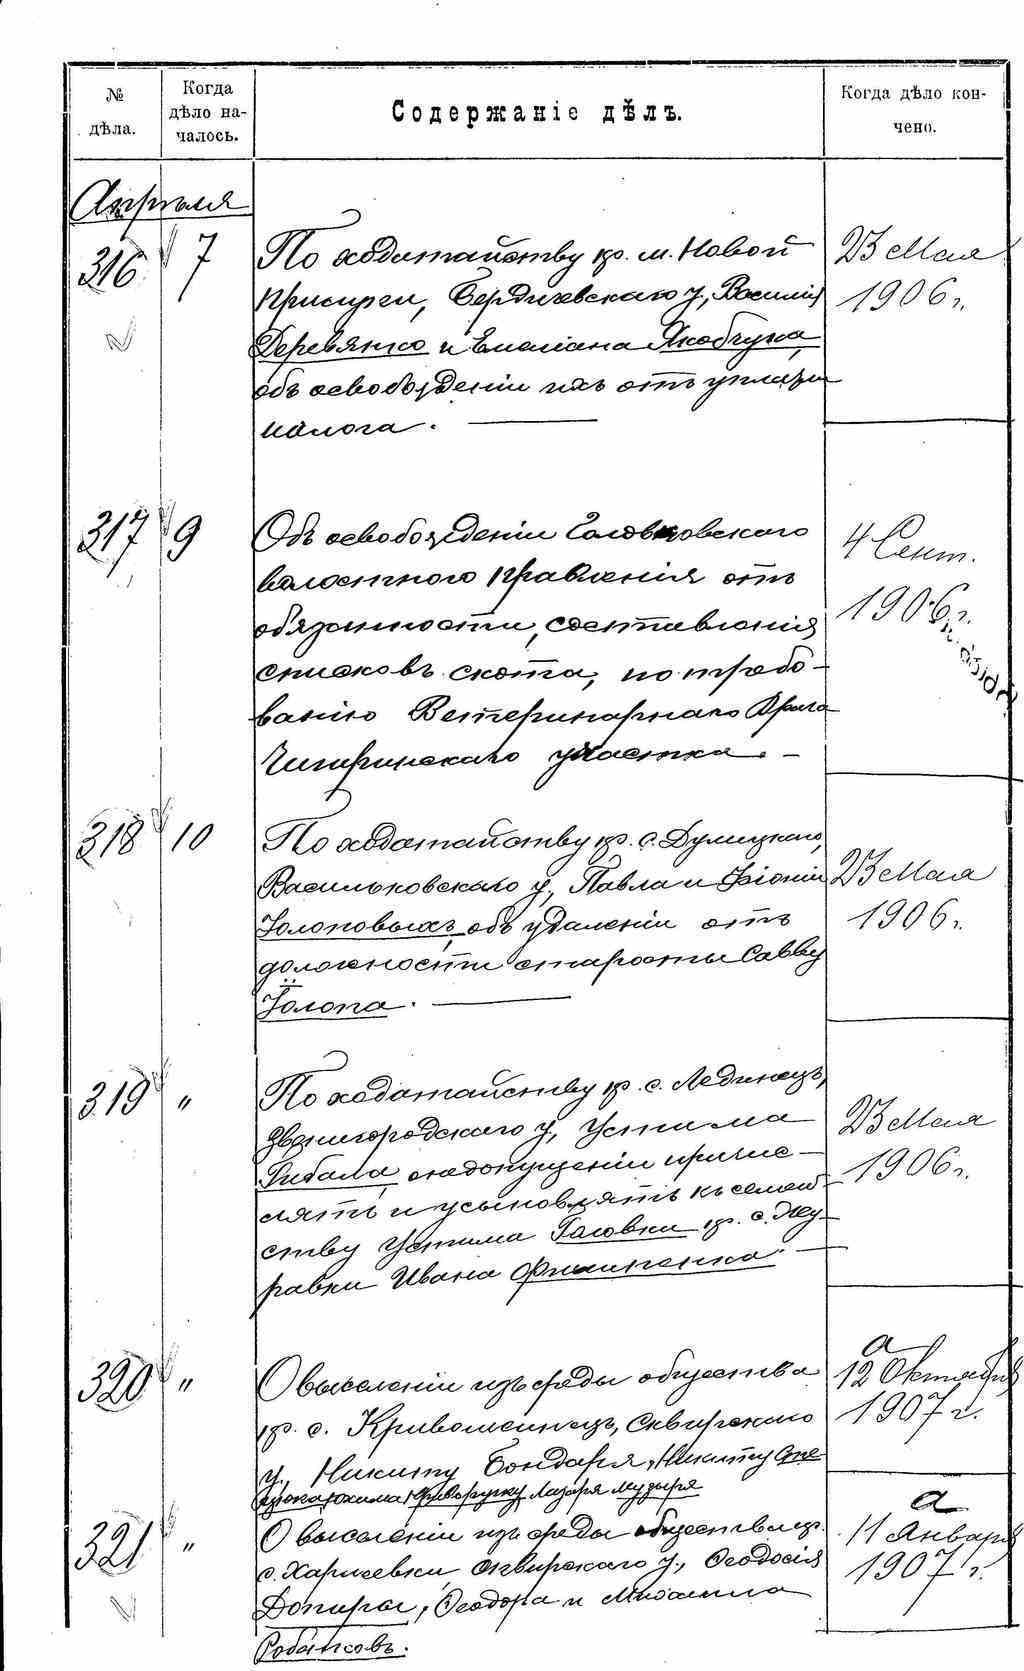 № дѣла.
Когда дѣло на-чалось.
Содержаніе дѣлъ.
Когда дѣло кон-чено.
Апрѣля
316 7
По ходатайству кр. м. Новой
Прилуки, Бердичевскаго у., Василія
Деревянко и Емельяна Якобчука,
объ освобожденіи ихъ отъ уплаты
налога.
23 Мая
1906 г.
317 9
Объ освобожденіи Головковскаго
волостного правленія отъ
обязанности, составленія
списковъ скота, по требо-
ванію Ветеринарнаго Врача
Чигиринскаго участка.
4 Сент.
1906 г.
318 10
По ходатайству кр. с. Дулицкаго,
Васильковскаго у., Павла и Фіоніи
Холоповыхъ, объ удаленіи отъ
должности старосты Савву
Холопа.
23 Мая
1906 г.
319 "
По ходатайству кр. с. Лединецъ,
Звенигородскаго у., Устима
Рибала о недопущеніи причис-
лять и усыновлять къ семей-
ству Устима Головки кр. с. Жу-
равки Ивана Филипенка.
23 Мая
1906 г.
320 "
О выселеніи изъ среды общества
кр. с. Кривошеинецъ, Сквирскаго
у., Никиту Бондаря, Никиту
Криворучку Лазаря Музыря
а
12 Октября
1907 г.
321 "
О выселеніи изъ среды общества кр.
с. Харлеевки, Сквирскаго у., Ѳеодосія
Допиры, Ѳеодора и Михаила
Робаковъ.
а
11 Января
1907 г.